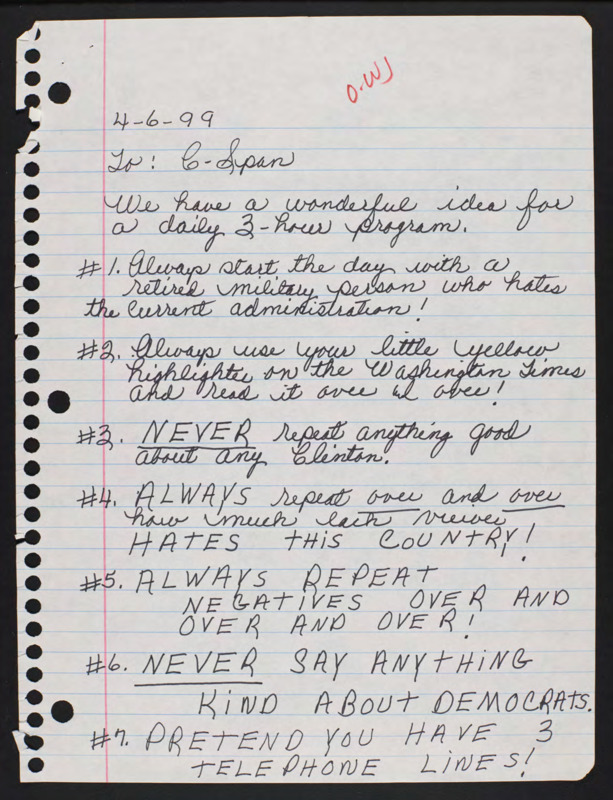 O.W)
4-6-99
To: C-Span
We have a wonderful idea for
a daily 3-hour program.
#1. Always start the day with a
retired military person who hates
the current administration!
#2. Always use your little yellow
highlighter on the Washington Times
and read it over & over!
#3. NEVER repeat anything good
about any Clinton.
#4. ALWAYS repeat over and over
how much each viewer
HATES THIS COUNTRY!
#5. ALWAYS REPEAT
NEGATIVES OVER AND
OVER AND OVER!
#6. NEVER SAY ANYTHING
KIND ABOUT DEMOCRATS.
#7. PRETEND YOU HAVE 3
TELEPHONE LINES!